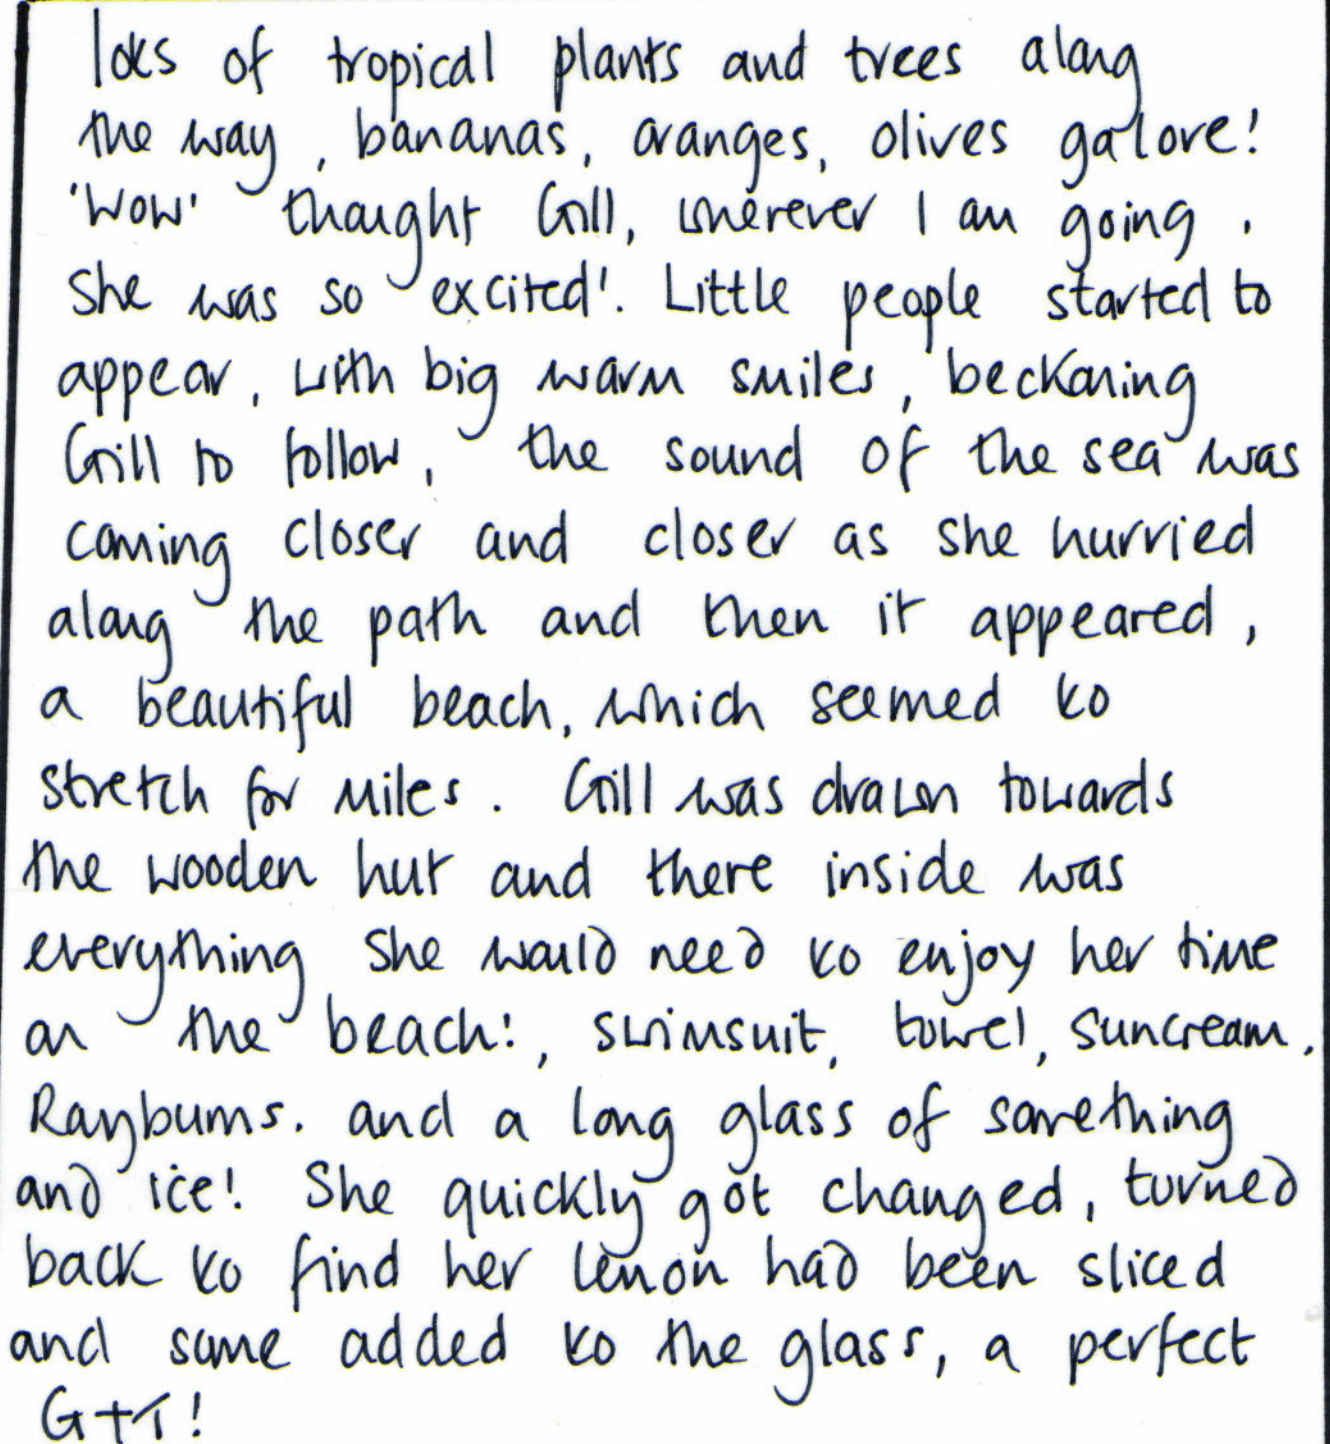 lots of tropical plants and trees along
the way, bananas, oranges, olives galore!
'Wow' thought Gill, wherever I am going.
She was so excited!. Little people started to
appear, with big warm smiles, beckoning
Gill to follow, the sound of the sea was
coming closer and closer as she hurried
along the path and then it appeared,
a beautiful beach, which seemed to
stretch for miles. Gill was drawn towards
the wooden hut and there inside was
everything she would need to enjoy her time
on the beach!, swimsuit, towel, suncream,
Raybums. and a long glass of something
and ice! She quickly got changed, turned
back to find her lemon had been sliced
and some added to the glass, a perfect
G+T!